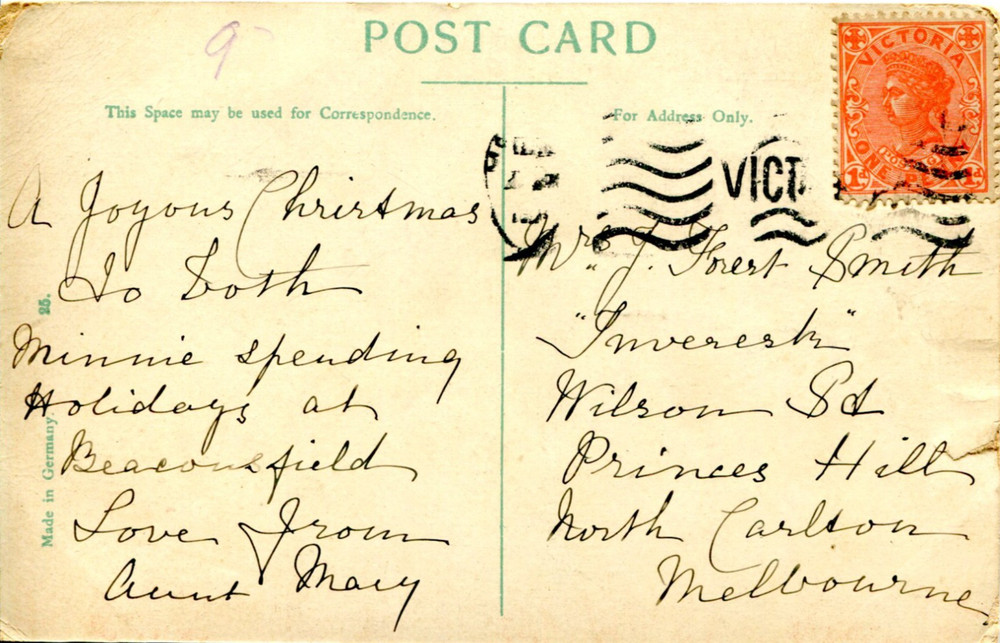 9
POST CARD
This Space may be used for Correspondence.
For Address Only.
VICTORIA
POSTAGE
ONE PENNY
1d
VICT
A Joyous Christmas
To both
Minnie spending
Holidays at
Beaconsfield
Love from
Aunt Mary
Mrs. J. Forest Smith
"Inveresk"
Wilson St
Princes Hill
North Carlton
Melbourne
Made in Germany 25.